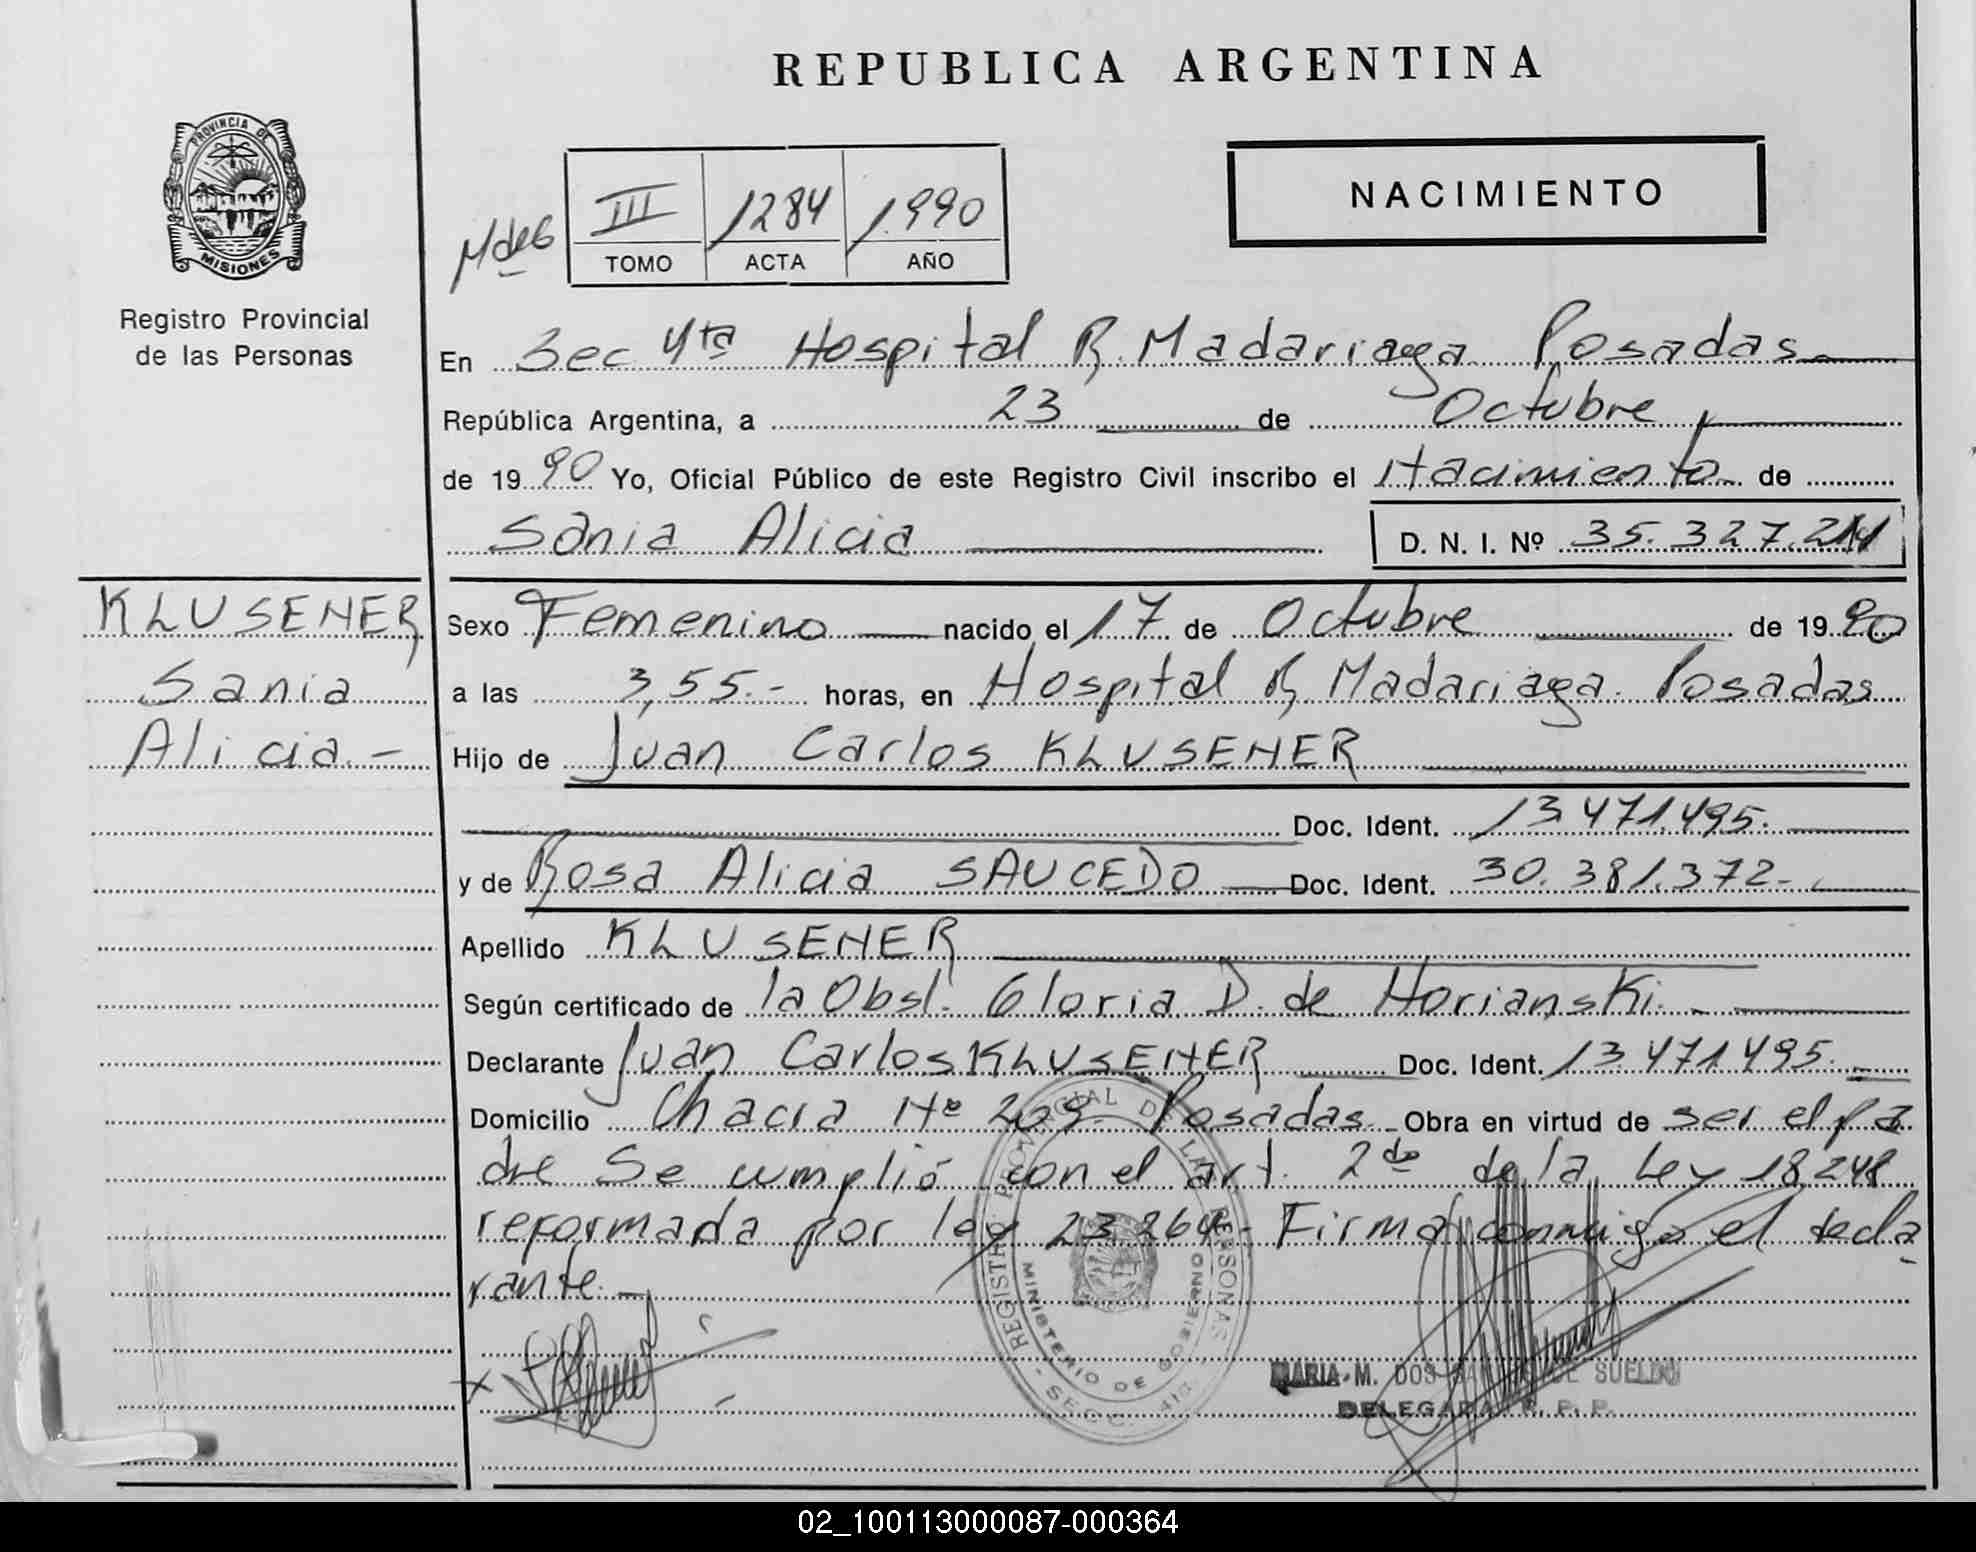 REPUBLICA ARGENTINA
PROVINCIA DE
MISIONES
Registro Provincial
de las Personas
NACIMIENTO
III 1284 1.990
TOMO ACTA AÑO
En Sec 4ta Hospital R. Madariaga Posadas
República Argentina, a 23 de Octubre
de 1990 Yo, Oficial Público de este Registro Civil inscribo el Nacimiento de
Sania Alicia D. N. I. Nº 35.327.
KLUSENER
Sania
Alicia.-
Sexo Femenino nacido el 17 de Octubre de 1990
a las 3,55.- horas, en Hospital R. Madariaga Posadas
Hijo de Juan Carlos KLUSENER
Doc. Ident. 13.471.495.
y de Rosa Alicia SAUCEDO Doc. Ident. 30.381.372-
Apellido KLUSENER
Según certificado de la Obst. Gloria D. de Norianski.
Declarante Juan Carlos KLUSENER Doc. Ident. 13.471.495.
Domicilio Chacra Nº 209. Posadas. Obra en virtud de ser el pa
dre Se cumplió con el art. 2do de la Ley 18.248
reformada por ley 23.264- Firma conmigo el decla
rante.-
REGISTRO PROVINCIAL DE LAS PERSONAS
MINISTERIO DE GOBIERNO
- SECC. 4ta.
MARIA M. DOS DE SUELDO
DELEGADA R. P. P.
02_100113000087-000364